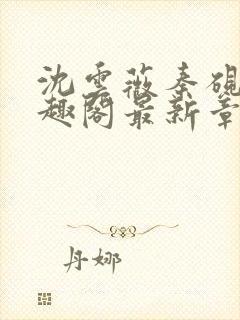 沈云薇秦砚
趣阁最新章
丹娜